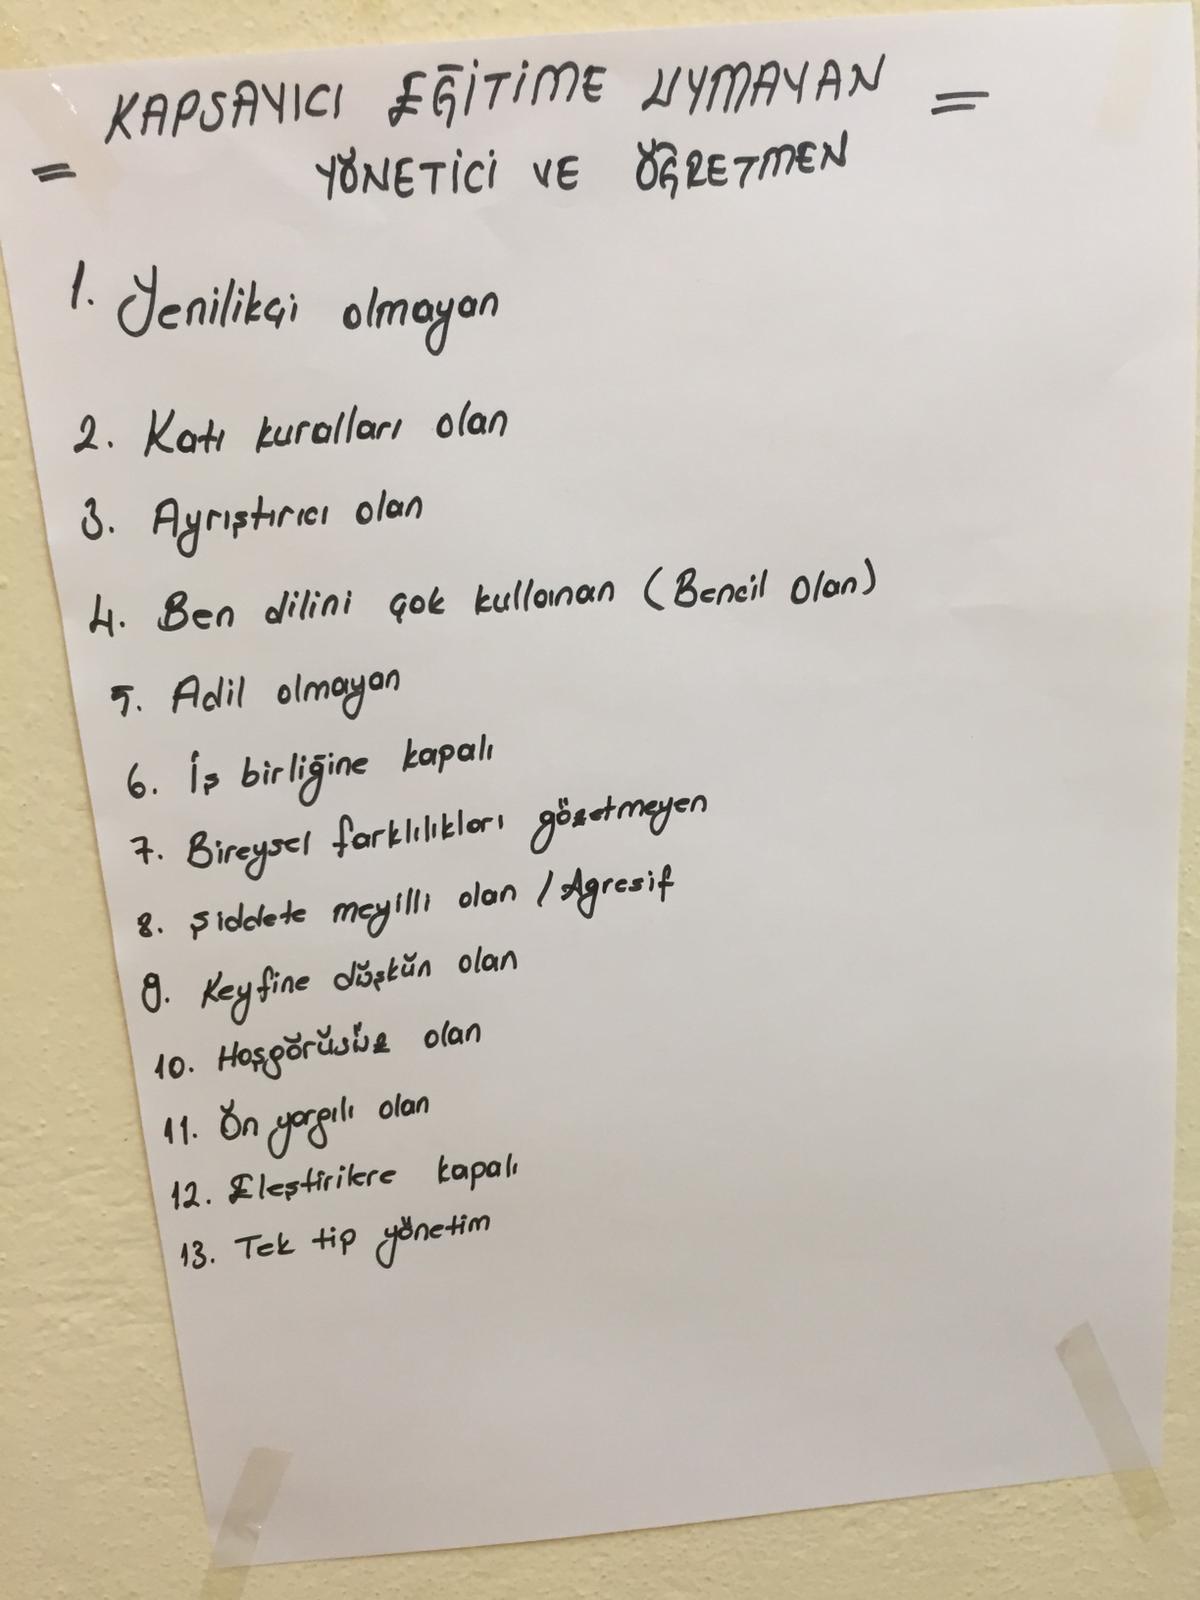 KAPSAYICI EĞİTİME UYMAYAN
= YÖNETİCİ VE ÖĞRETMEN =
1. Yenilikçi olmayan
2. Katı kuralları olan
3. Ayrıştırıcı olan
4. Ben dilini çok kullanan (Bencil olan)
5. Adil olmayan
6. İş birliğine kapalı
7. Bireysel farklılıkları gözetmeyen
8. Şiddete meyilli olan / Agresif
9. Keyfine düşkün olan
10. Hoşgörüsüz olan
11. Ön yargılı olan
12. Eleştirilere kapalı
13. Tek tip yönetim